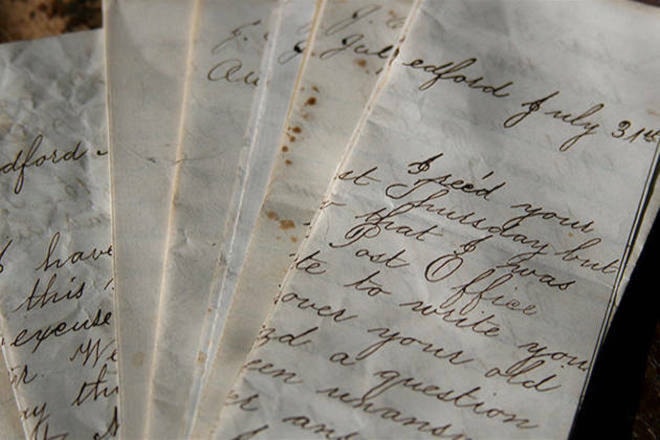 dford
I have
this
excuse
We
J.
Au
J.
July
edford July 31st
I rec'd your
st Thursday but
that I was
Post Office
te to write you
over your old
zd a question
een unansw